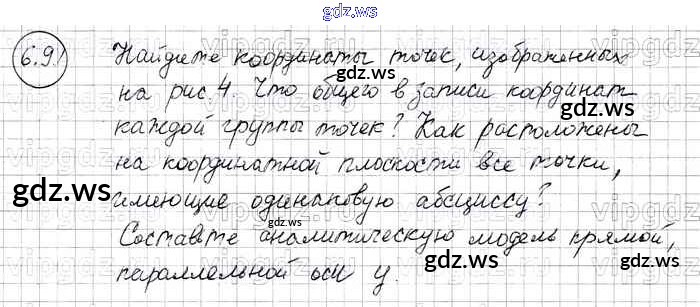 gdz.ws
6.9.
Найдите координаты точек, изображенных
на рис 4. Что общего в записи координат
каждой группы точек? Как расположены
на координатной плоскости все точки,
имеющие одинаковую абсциссу?
Составьте аналитическую модель прямой,
параллельной оси y.
gdz.ws
gdz.ws
gdz.ws
gdz.ws
gdz.ws
gdz.ws